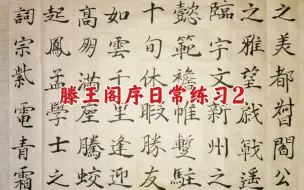 之美都督閻公
之雅望棨戟遙
臨宇文新州之
懿範襜帷暫駐
十旬休暇勝友
如雲千里逢迎
高朋滿座騰蛟
起鳳孟學士之
詞宗紫電青霜
滕王阁序日常练习2